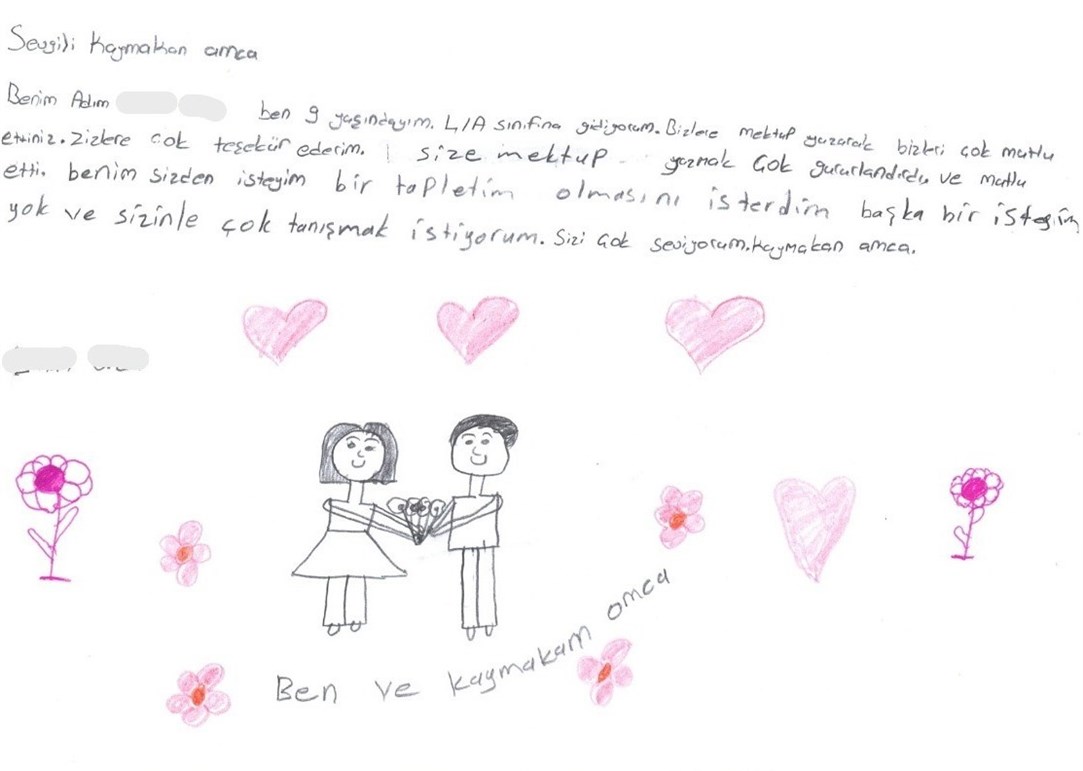 Sevgili Kaymakan amca
Benim Adım ben 9 yaşındayım. 4/A sınıfına gidiyorum. Bizlere mektup yazarak bizleri çok mutlu
ettiniz. Zizlere çok teşekür ederim. size mektup yazmak çok gururlandırdı ve mutlu
etti. benim sizden isteyim bir tapletim olmasını isterdim başka bir isteğim
yok ve sizinle çok tanışmak istiyorum. Sizi çok seviyorum. Kaymakan amca.
Ben ve kaymakam amca